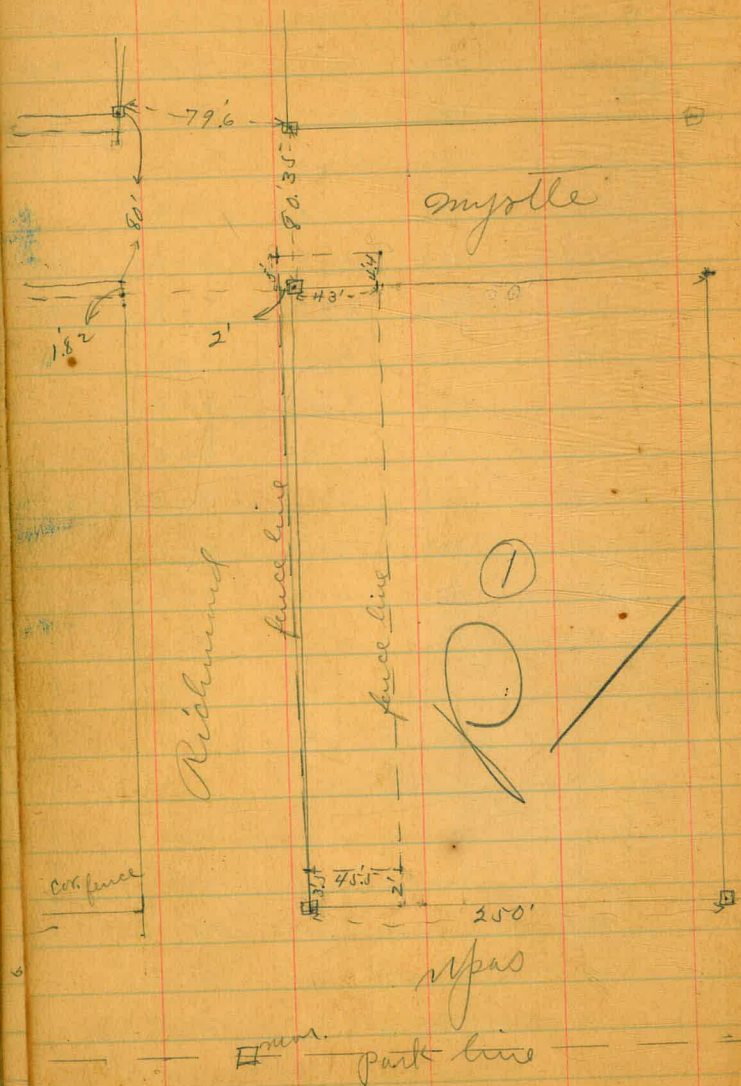 79.6
80'
80.35
myrtle
5'
4.4
43'
1.82
2'
Richmond
fence line
fence line
1
cor. fence
3.5
45.5'
2'
250'
Upas
mon.
park line
6